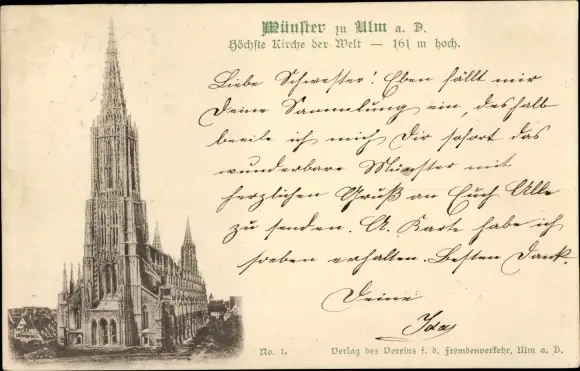 Münster zu Ulm a. D.
Höchste Kirche der Welt — 161 m hoch.
Liebe Schwester! Eben fällt mir
Deine Sammlung ein, deshalb
beeile ich mich Dir sofort das
wunderbare Münster mit
herzlichen Gruß an Euch Alle
zu senden. A. Karte habe ich
soeben erhalten. Besten Dank.
Deine
Ida
No. 1. Verlag des Vereins f. d. Fremdenverkehr, Ulm a. D.